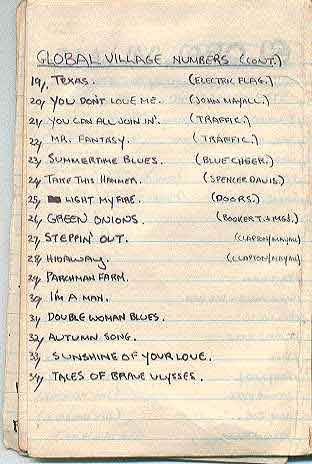 GLOBAL VILLAGE NUMBERS (CONT.)
19, TEXAS. (ELECTRIC FLAG.)
20, YOU DON'T LOVE ME. (JOHN MAYALL.)
21, YOU CAN ALL JOIN IN. (TRAFFIC.)
22, MR. FANTASY. (TRAFFIC.)
23, SUMMERTIME BLUES. (BLUE CHEER.)
24, TAKE THIS HAMMER. (SPENCER DAVIS.)
25, LIGHT MY FIRE. (DOORS.)
26, GREEN ONIONS. (BOOKER T. & MGS.)
27, STEPPIN' OUT. (CLAPTON/MAYALL)
28, HIDAWAY. (CLAPTON/MAYALL)
29, PARCHMAN FARM.
30, I'M A MAN.
31, DOUBLE WOMAN BLUES.
32, AUTUMN SONG.
33, SUNSHINE OF YOUR LOVE.
34, TALES OF BRAVE ULYSSES.